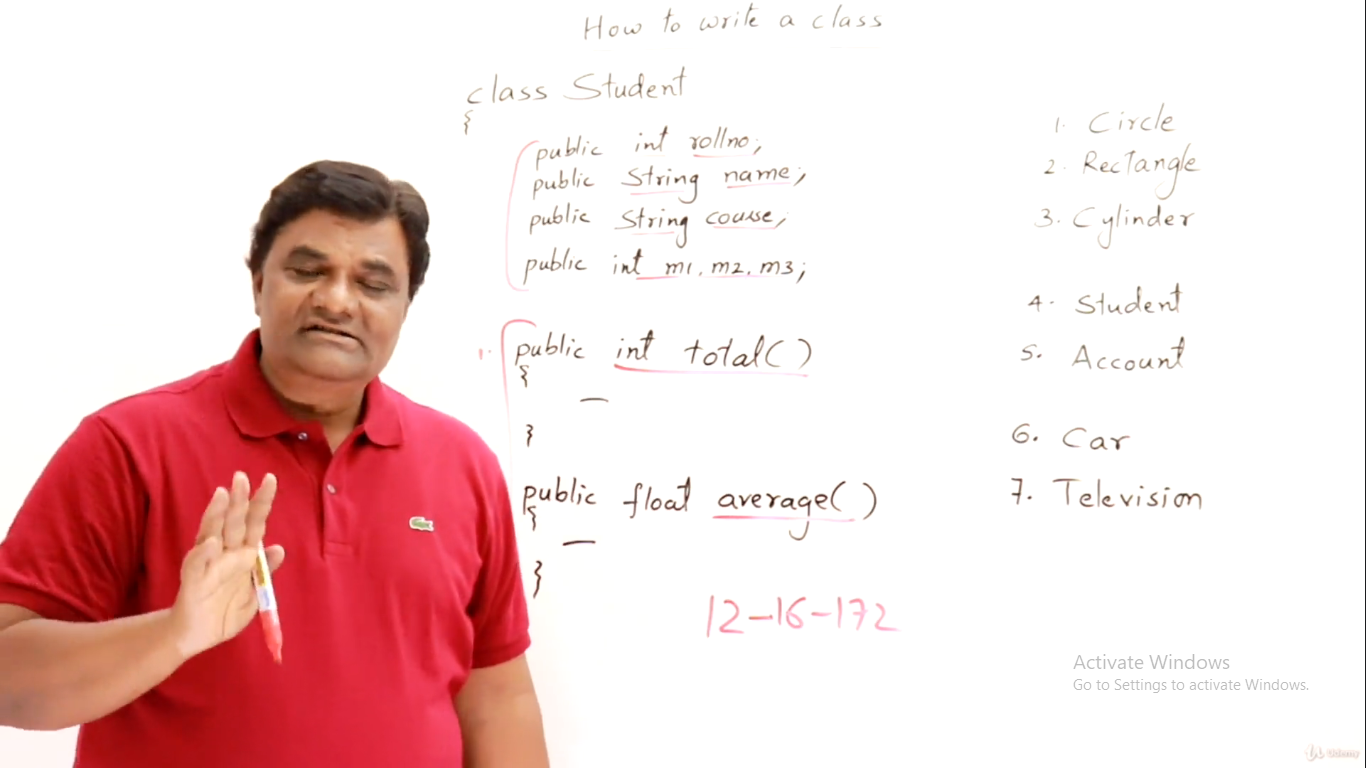 How to write a class
class Student
{
public int rollno;
public String name;
public String course;
public int m1, m2, m3;
1. public int total()
{
—
}
public float average()
{
—
}
12-16-172
1. Circle
2. Rectangle
3. Cylinder
4. Student
5. Account
6. Car
7. Television
Activate Windows
Go to Settings to activate Windows.
Udemy